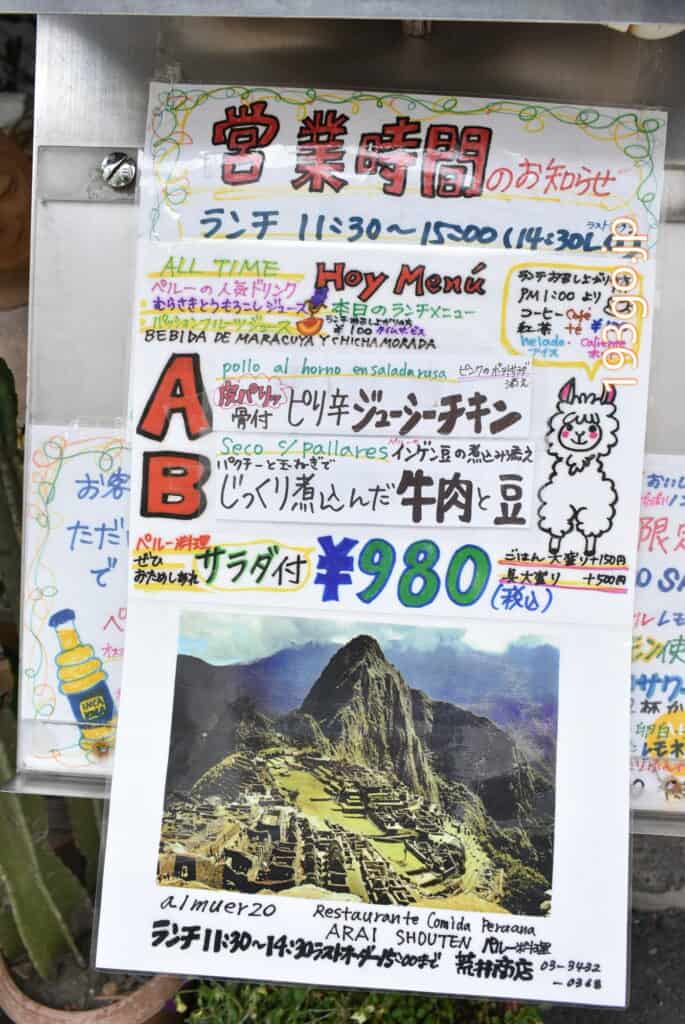 営業時間のお知らせ
ランチ 11:30〜15:00(14:30L
ラスト
ALL TIME
ペルーの人気ドリンク
むらさきとうもろこしジュース
パッションフルーツジュース
BEBIDA DE MARACUYA Y CHICHAMORADA
Hoy Menú
本日のランチメニュー
¥100 タイムサービス
PM 1:00 より
コーヒー Café
紅茶 té
helado・Caliente
アイス
A
pollo al horno ensaladarusa ピンクのポテトサラダ添え
皮パリッ
骨付 ピリ辛ジューシーチキン
B
Seco c/pallares インゲン豆の煮込み添え
パクチーと玉ねぎで
じっくり煮込んだ 牛肉と豆
ペルー料理
ぜひ
おためしあれ
サラダ付 ¥980
(税込)
ごはん大盛り+150円
具大盛り +500円
almuerzo Restaurante Comida Peruana
ARAI SHOUTEN ペルー料理
ランチ11:30〜14:30ラストオーダー15:00まで 荒井商店 03-3432
-0368
お客
ただ
で
INCA
おいし
限定
レモ
モン使
サワ
杯か
卵白
レモネ
193go.jp